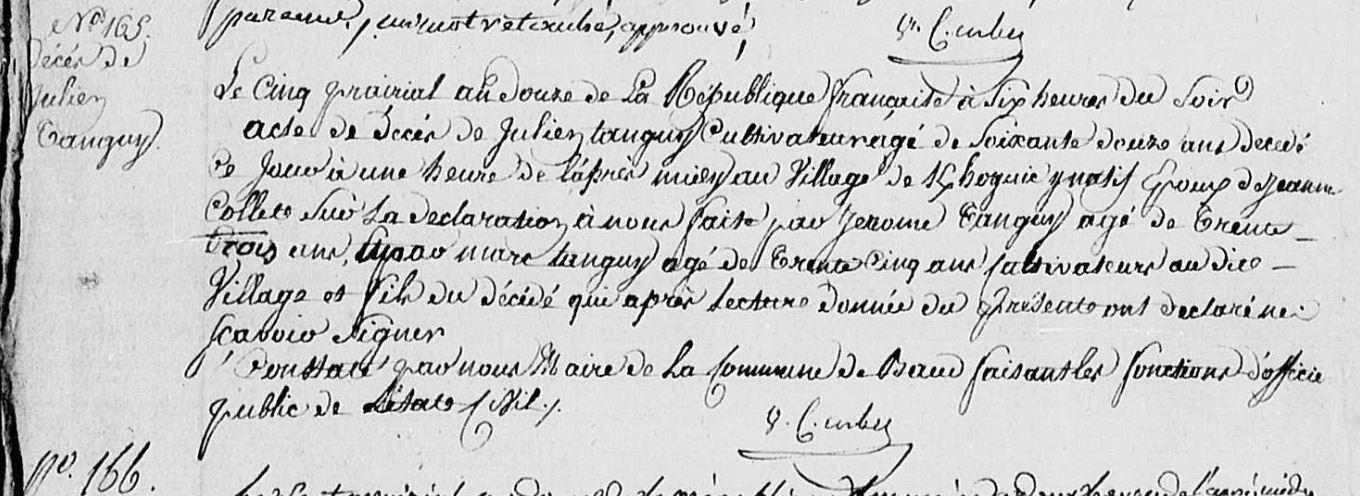 par eux / un mot retouché, approuvé,
No 165.
Décès de
Julien
Tanguy.
Le cinq prairial an douze de La République française à six heures du soir
acte de Décès de Julien tanguy Cultivateur âgé de soixante douze ans decedé
ce jour à une heure de l'après midy au Village de natif Epoux de jeanne
Collete sur La declaration à nous faite par Jerome Tanguy agé de trente
trois ans, et par marc tanguy agé de trente cinq ans cultivateurs au dit
Village et fils du décidé qui après Lecture donnée du présent ont declaré ne
scavoir signer
Constaté par nous Maire de La Commune de Baud faisant les fonctions d'officie
public de Létat Civil /.
No. 166.